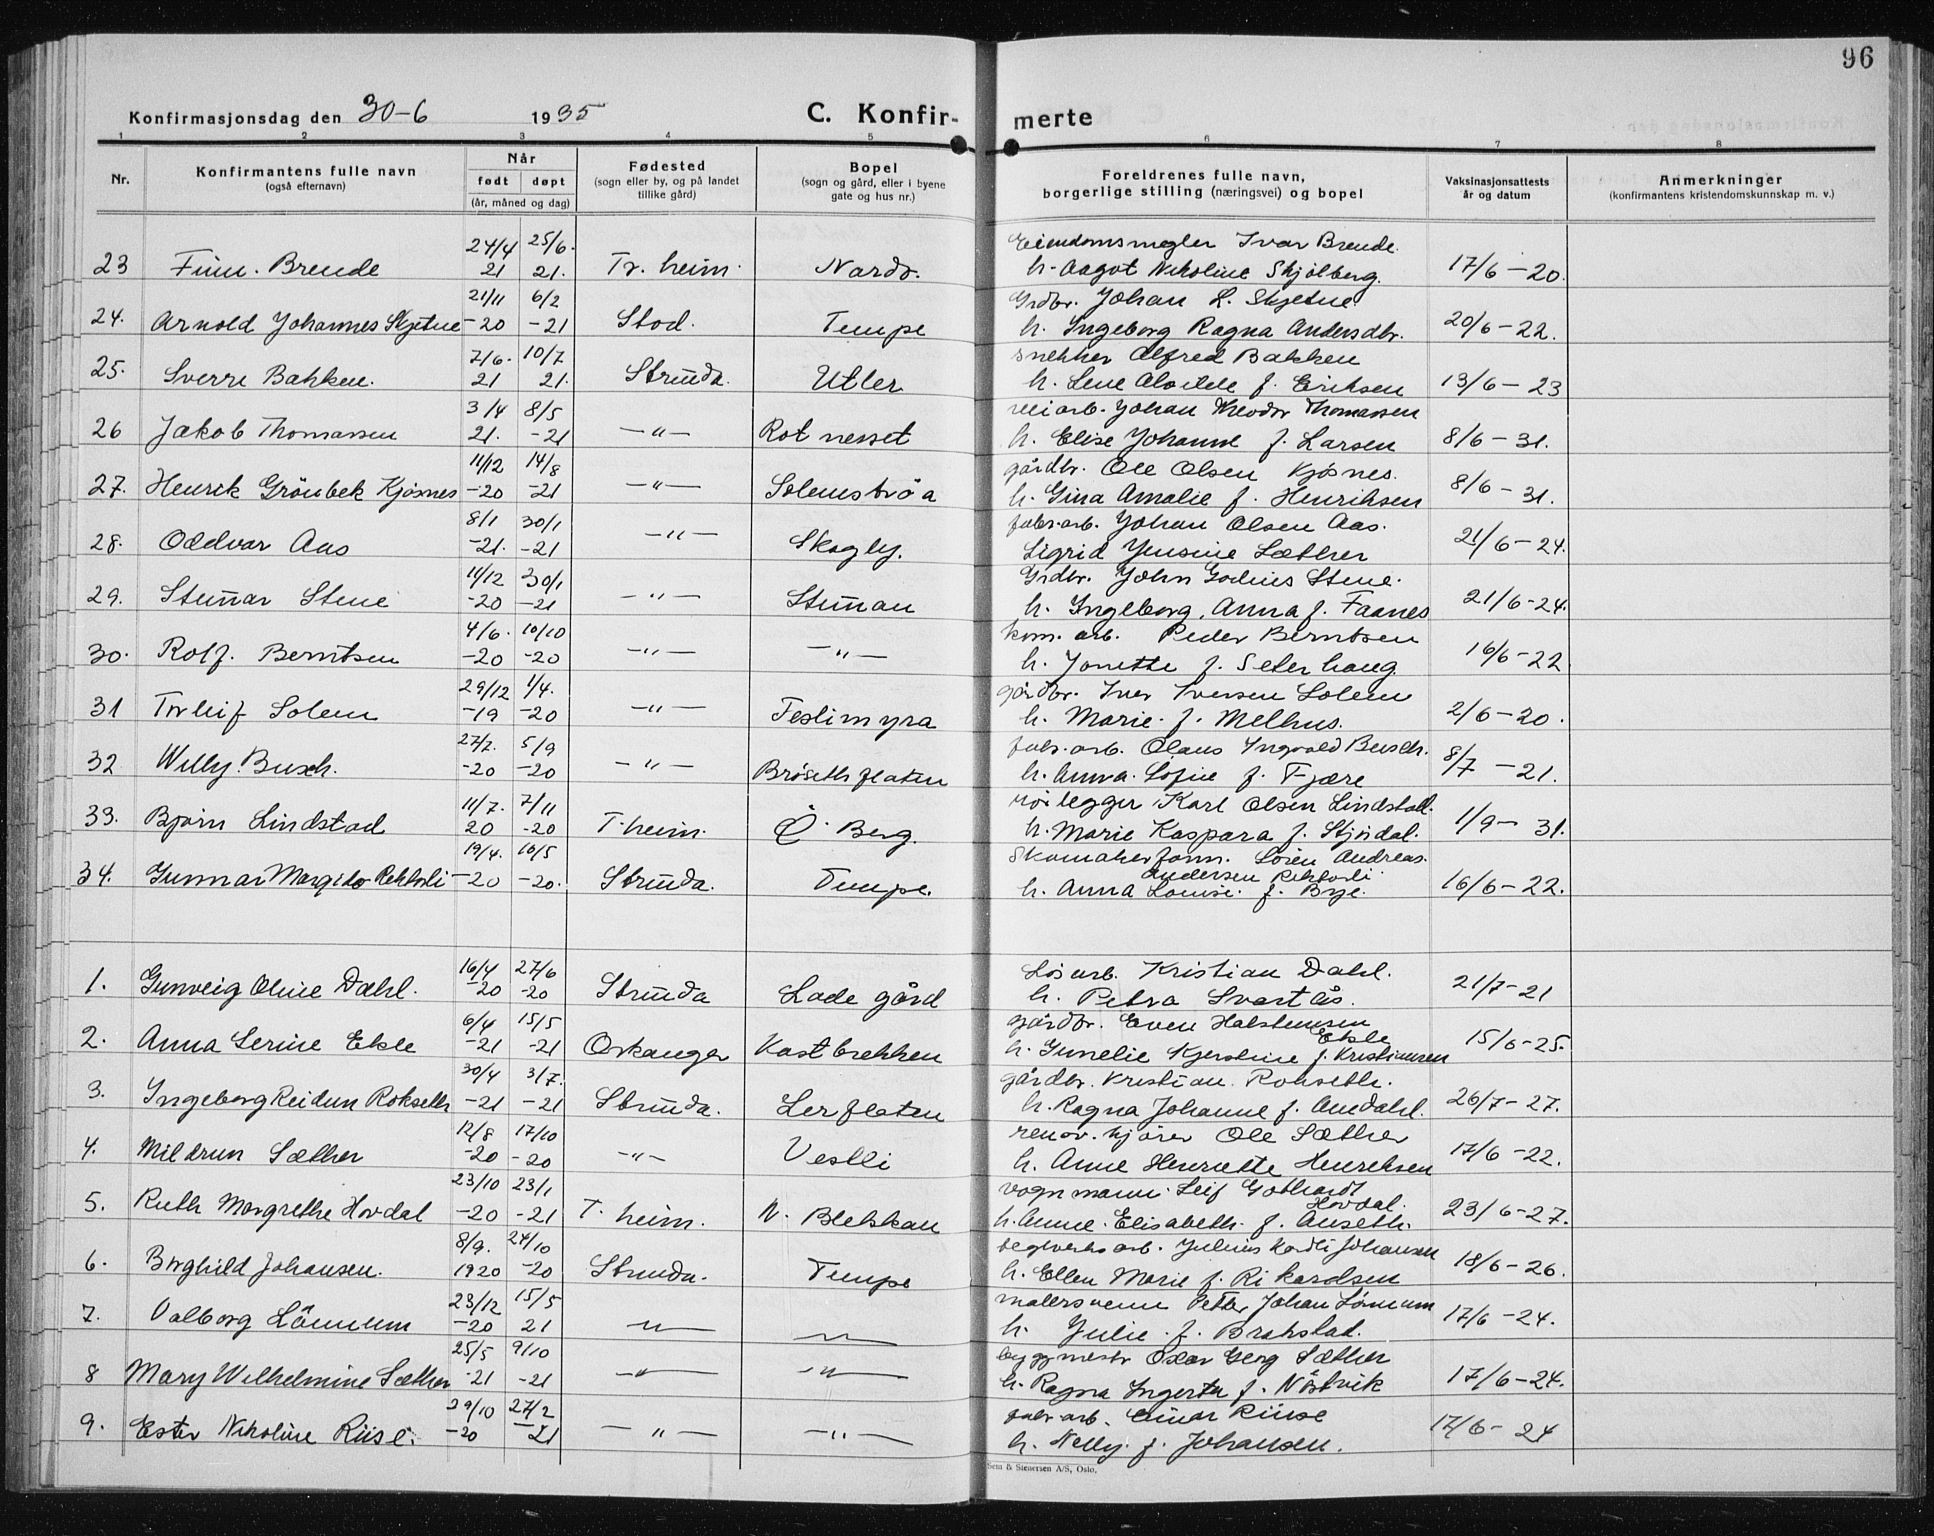 96
Konfirmasjonsdag den 30-6 1935 C. Konfir- merte
1 2 3 4 5 6 7 8
Nr. Konfirmantens fulle navn (også efternavn) Når født døpt (år, måned og dag) Fødested (sogn eller by, og på landet tillike gård) Bopel (sogn og gård, eller i byene gate og hus nr.) Foreldrenes fulle navn, borgerlige stilling (næringsvei) og bopel Vaksinasjonsattests år og datum Anmerkninger (konfirmantens kristendomskunnskap m. v.)
24/4 25/6 Eiendomsmegler Ivar Brende.
23 Finn. Brende 21 21. Tr. heim. Nardo. h. Aagot Nikoline Skjølberg. 17/6-20.
21/11 6/2 Grdbr. Johan L. Skjetne
24. Arnold Johannes Skjetne -20 -21 Stod. Tempe h. Ingeborg Ragna Andersdtr. 20/6-22.
7/6. 10/7 snekker Alfred Bakken
25. Sverre Bakken. 21 21. Strinda. Utler h. Lene Alvilde f. Eriksen 13/6-23
3/4 8/5 veiarb. Johan Theodor Thomassen
26 Jakob Thomassen 21. -21 -"- Rotnesset h. Elise Johanne f. Larsen 8/6-31.
11/12 14/8 gårdbr. Ole Olsen Kjøsnes.
27. Henrik Grönbek Kjøsnes -20 -21 -"- Solemsbrøa h. Gina Amalie f. Henriksen 8/6-31.
8/1 30/1 fabr.arb. Johan Olsen Aas.
28. Oddvar Aas -21. -21 -"- Skogly. Sigrid Jensine Sæther 21/6-24.
11/12 30/1 Grdbr. John Godius Stene.
29. Steinar Stene -20 -21 -"- Steinan h. Ingeborg, Anna f. Faanes 21/6-24.
4/6. 10/10 kom. arb. Peder Berntsen
30. Rolf. Berntsen -20 -20 -"- -"- h. Jonette f. Seterhaug 16/6-22
29/12 1/4. gårdbr. Iver Iversen Solem
31 Torleif Solem -19 -20 -"- Feslimyra h. Marie. f. Melhus. 2/6-20.
27/7. 5/9 fabr.arb. Olaus Ingvald Busch.
32 Willy. Busch. -20 -20 -"- Brøsethflaten h. Anna. Sofie f. Fjære 8/7-21.
11/7. 7/11 rørlegger Karl Olsen Lindstad.
33. Bjørn Lindstad 20 -20 T.heim. Ö. Berg. h. Marie Kaspara f. Stjørdal. 1/9-31.
19/4. 16/5 Skomakerform. Sören Andreas.
Andersen Rekkli
34. Gunnar Margido -20 -20. Strinda. Tempe. h. Anna Louise. f. Bye. 16/6-22.
16/4 27/6 Løsarb. Kristian Dahl.
1. Gunveig Oline Dahl. -20 -20 Strinda Lade gård h. Petra Svartås. 21/7-21
6/4 15/5 gårdbr. Even Halstensen
Eksle
2. Anna Serine Eksle -21 -21 Orkanger Kastbrekken h. Gunelie Kjerstine f. Kristiansen 15/6-25.
30/4 3/7. gårdbr. Kristian. Rokseth.
3. Ingeborg Reidun Rokseth -21 -21 Strinda. Lerflaten h. Ragna Johanne f. Amdahl. 26/7-27.
12/8 17/10 renov.kjører Ole Sæther
4. Mildrun Sæther -20 -20 -"- Vestli h. Anne Henriette Henriksen 17/6-22.
23/10 23/1 vognmann. Leif Gothardt
Hovdal.
5. Ruth Margrethe Hovdal -20 -21 T. heim. N. Blekkan h. Anne. Elisabeth. f. Anseth. 23/6-27.
8/9. 24/10 teglverksarb. Julius Kordli Johansen
6. Borghild Johansen. 1920 -20 Strinda. Tempe h. Ellen Marie f. Rikardsen 18/6-26.
23/12 15/5 malersvenn Petter Johan Lönnum
7. Valborg Lönnum -20 21 -"- -"- h. Julie. f. Brakstad. 17/6-24.
25/5 9/10 byggmestr. Oskar Georg Sæther
8 Mary Wilhelmine Sæther -21 -21 -"- -"- h. Ragna Ingerta f. Nöstvik 17/6-24.
29/10 27/2 fabr.arb. Einar Riise
9. Ester Nikoline Riise. -20 -21 -"- -"- h. Nelly. f. Johansen. 17/6-24
Sem & Stenersen A/S, Oslo.